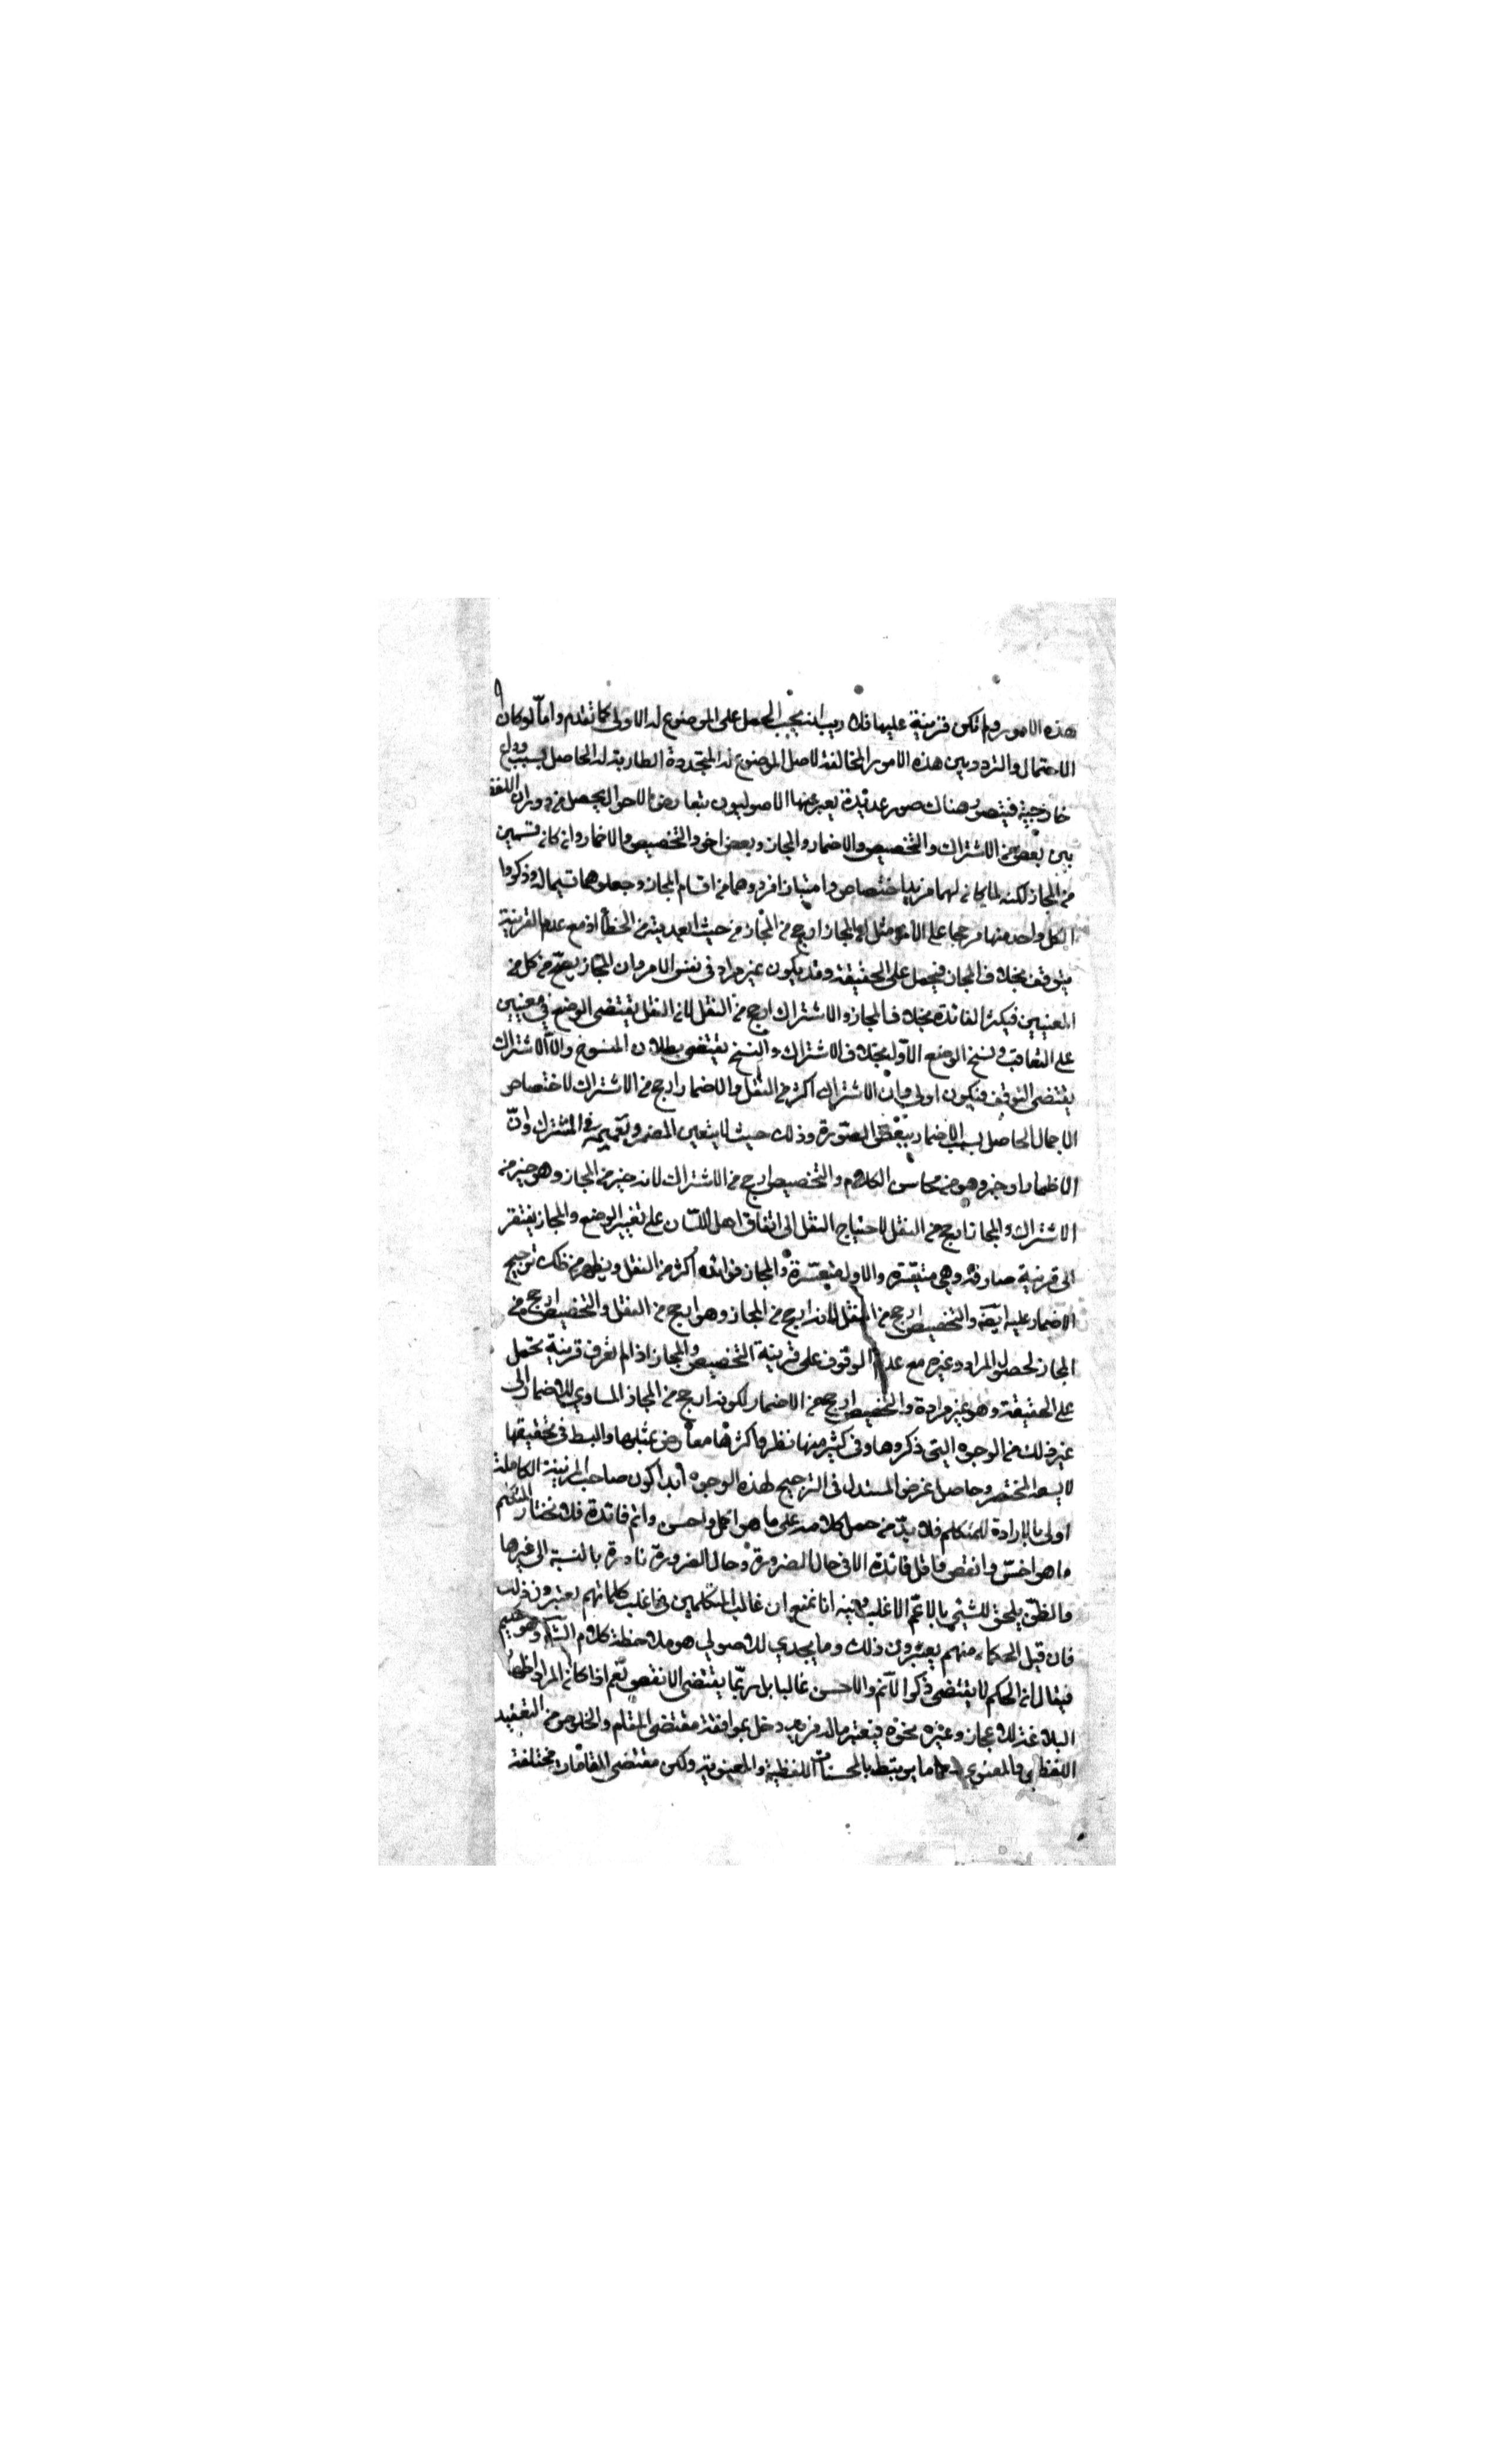 هذه الامور ولم تكن قرينة عليها فلا ريب انه يجب الحمل على الموضوع له الاولى كما تقدم واما لو كان
الاحتمال والتردد بين هذه الامور المخالفة لاصل الموضوع له المتجددة الطارية له الحاصل بسبب دواع
خارجية فيتصور هناك صور عديدة يعبر عنها الاصوليون بتعارض الاحوال يحصل من دوران اللفظ
بين بعض من الاشتراك والتخصيص والاضمار والمجاز وبعض اخر والتخصيص والاضمار وان كان قسمين
من المجاز لكنه لما كان لهما مزيد اختصاص وامتياز افردوهما من اقسام المجاز وجعلوهما قسيما له وذكروا
لكل واحد منها مرجحا على الاخر مثل ان المجاز ارجح من حيث ابعديته من الخطأ اذ مع عدم القرينة
يتوقف بخلاف المجاز فيحمل على الحقيقة وقد يكون غير مراد في نفس الامر وان المجاز يصح من كل من
المعنيين فيكثر الفائدة بخلاف المجاز والاشتراك ارجح من النقل لان النقل يقتضى الوضع في معنيين
على التعاقب ونسخ الوضع الاول بخلاف الاشتراك والنسخ يقتضى بطلان المنسوخ والاشتراك
يقتضى التوقف فيكون اولى وان الاشتراك اكثر من النقل والاضمار ارجح من الاشتراك لاختصاص
الاجمال الحاصل بسبب الاضمار ببعض الصورة وذلك حيث لا يتعين المضمر وتعميمه في المشترك وان
الاظمار اوجز وهو من محاسن الكلام والتخصيص ارجح من الاشتراك لانه خير من المجاز وهو خير من
الاشتراك والمجاز ارجح من النقل لاحتياج النقل الى اتفاق اهل اللسان على تغيير الوضع والمجاز يفتقر
الى قرينة صارفة وهي متيسرة والاول متعسرة والمجاز فوائده اكثر من النقل ويظهر من ذلك ترجيح
الاضمار عليه ايضا والتخصيص ارجح من النقل لانه ارجح من المجاز وهو ارجح من النقل والتخصيص ارجح من
المجاز لحصول المراد وغيره مع عدم الوقوف على قرينة التخصيص والمجاز اذا لم تعرف قرينة يحمل
على الحقيقة وهو غير مرادة والتخصيص ارجح من الاضمار لكونه ارجح من المجاز المساوي للاضمار الى
غير ذلك من الوجوه التي ذكروها وفي كثير منها نظر واكثرها معارض بمثلها والبسط في تحقيقها
لا يسعه المختصر وحاصل غرض المستدل في الترجيح لهذه الوجوه ابداء كون صاحب المزية الكاملة
اولى بالارادة للمتكلم فلا بد من حمل كلامه على ما هو اكمل واحسن واتم فائدة فلا نختار المتكلم
ما هو اخس وانقص واقل فائدة الا في حال الضرورة وحال الضرورة نادرة بالنسبة الى غيرها
والظن يلحق الشيء بالاعم الاغلب وفيه انا نمنع ان غالب المتكلمين في اغلب كلماتهم يعتبرون ذلك
فان قيل الحكماء منهم يعتبرون ذلك وما يجدي للاصولي هو ملاحظة كلام الشارع وهو حكيم
فيقال ان الحكم لا يقتضى ذكر الاتم والاحسن غالبا بل ربما يقتضى الانقص نعم اذا كان المراد اظهار
البلاغة للاعجاز وغيره نحوه فيعتبر ماله مزيد دخل بموافقة مقتضى المقام والخلوص من التعقيد
اللفظي والمعنوي ما يرتبط بالمحسنات اللفظية والمعنوية ولكن مقتضى المقامات مختلفة